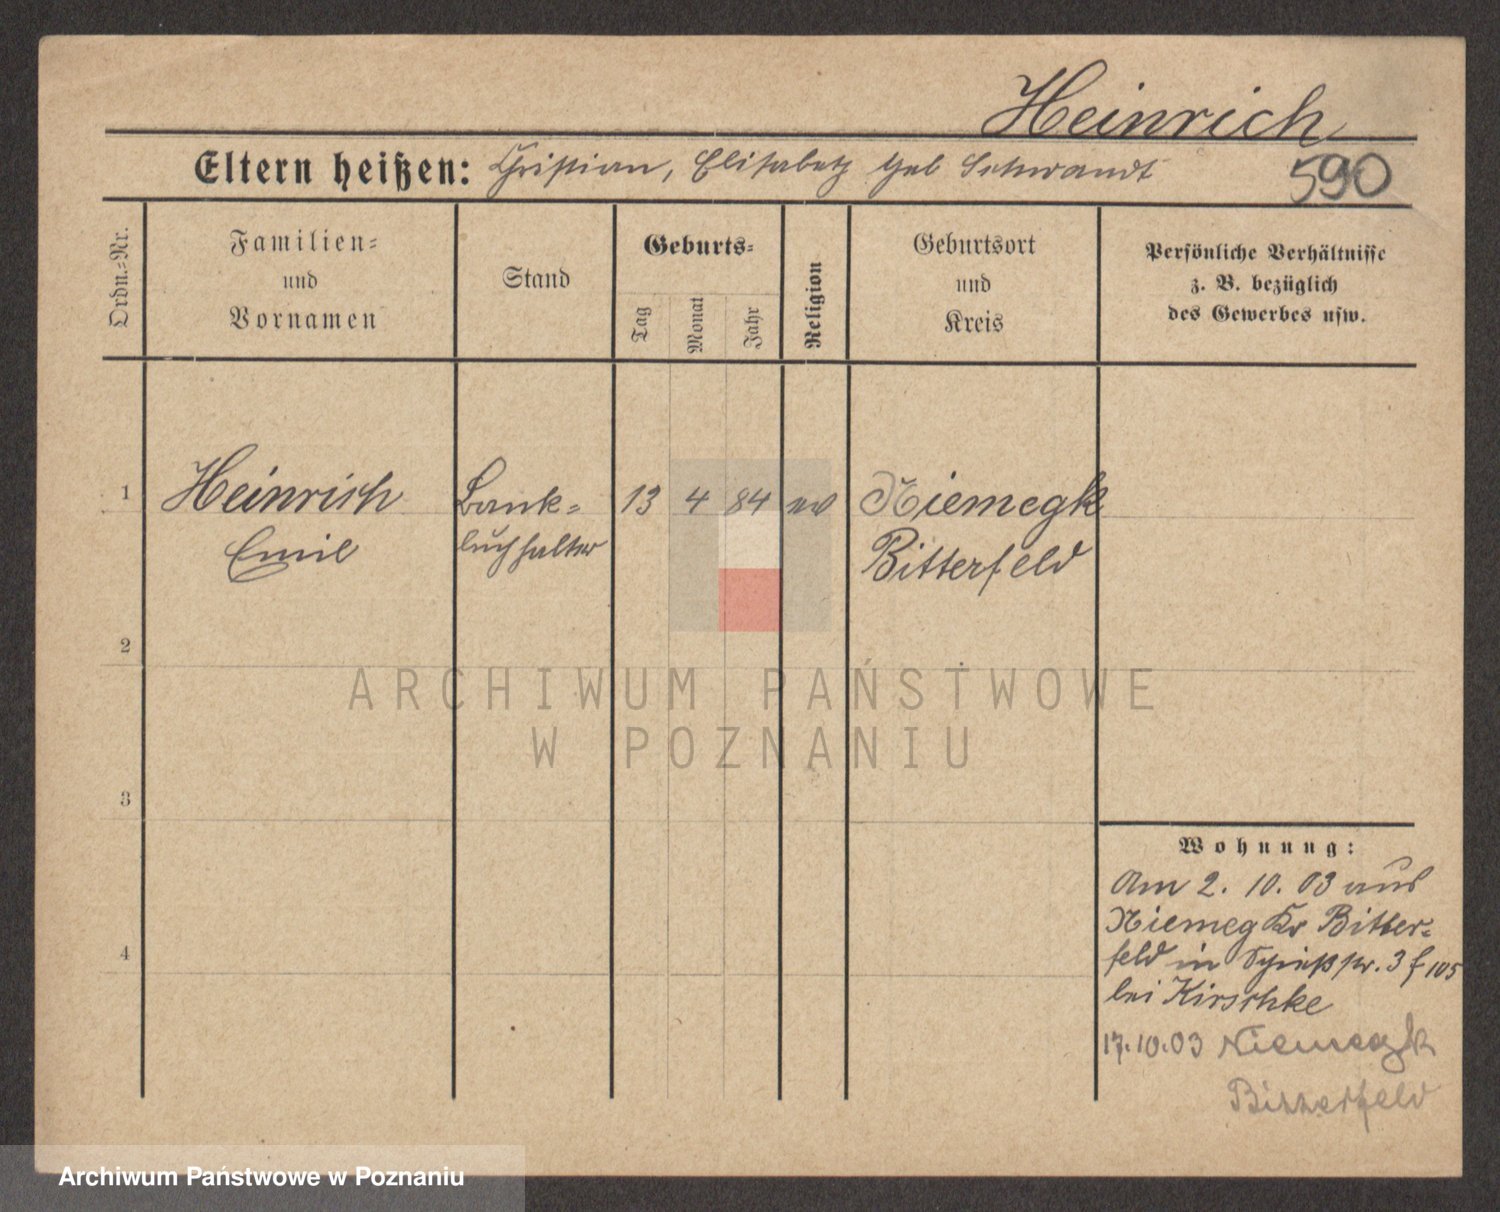 Heinrich
Eltern heißen: Christian, Elisabeth geb Schwandt
590
Ordn.=Nr.
Familien=
und
Vornamen
Stand
Geburts=
Tag
Monat
Jahr
Religion
Geburtsort
und
Kreis
Persönliche Verhältnisse
z. B. bezüglich
des Gewerbes usw.
1 Heinrich Bank= 13 4 84 ev Niemegk
Emil buchhalter Bitterfeld
2
3
4
ARCHIWUM PAŃSTWOWE
W POZNANIU
Wohnung:
Am 2. 10. 03 aus
Niemeg Kr Bitter=
feld in 3 105
bei Kirschke
17.10.03 Niemegk
Bitterfeld
Archiwum Państwowe w Poznaniu